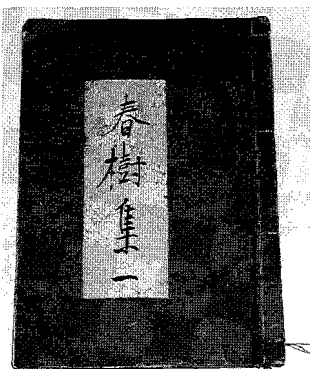 春樹集一